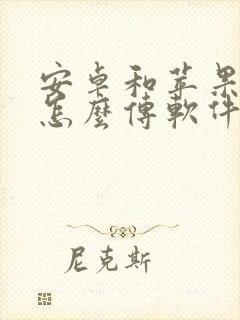 安卓和苹果
怎麼傳軟件
尼克斯